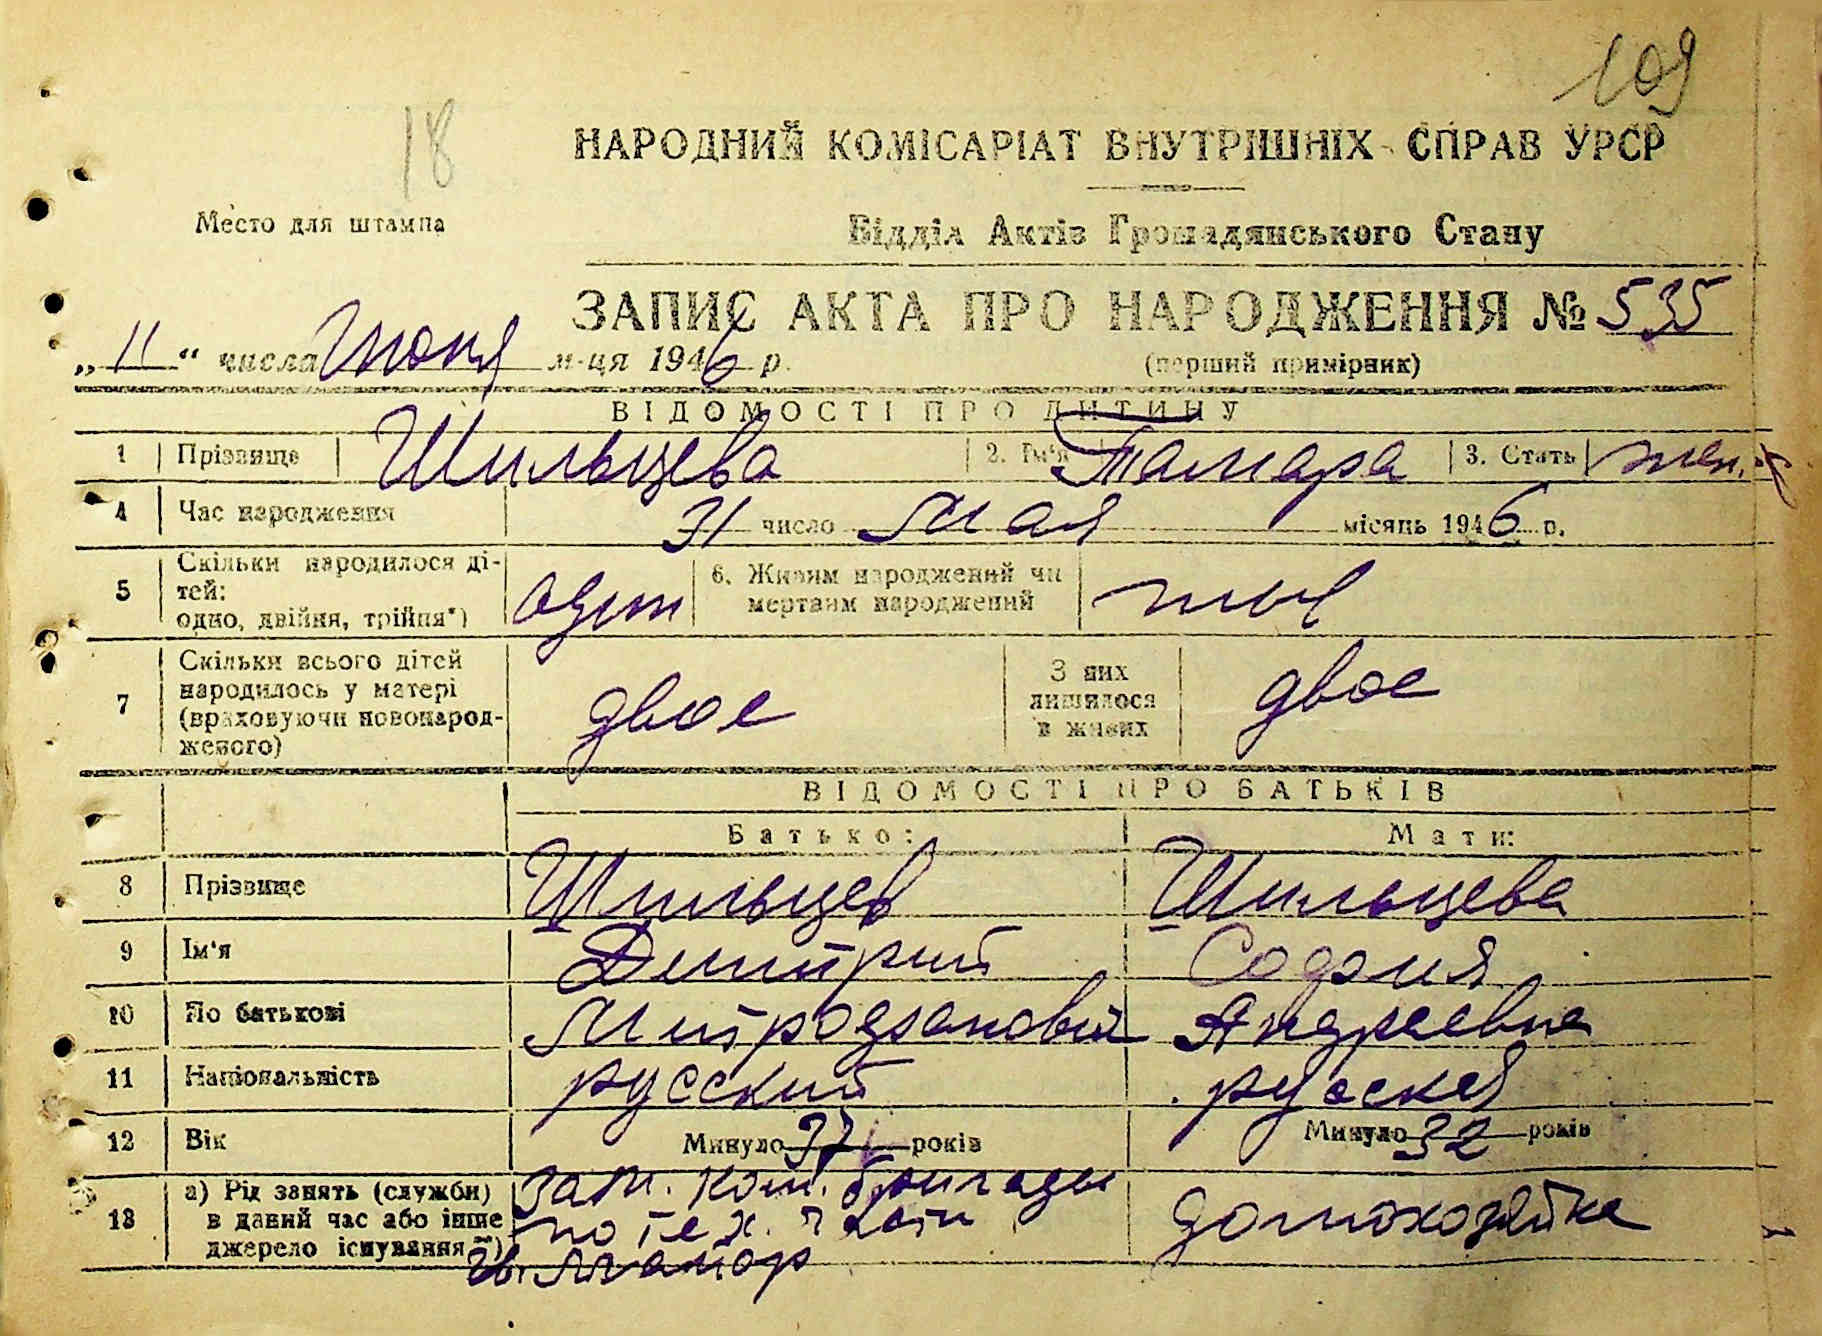 109
18
НАРОДНИЙ КОМІСАРІАТ ВНУТРІШНІХ СПРАВ УРСР
Место для штампа
Відділ Актів Громадянського Стану
ЗАПИС АКТА ПРО НАРОДЖЕННЯ № 535
„11“ числа Июня м-ця 1946 р.
(перший примірник)
ВІДОМОСТІ ПРО ДИТИНУ
1 Прізвище Шильцева 2. Ім'я Тамара 3. Стать жен.
4 Час народження 31 число Мая місяць 1946 р.
5 Скільки народилося ді-
тей:
одно, двійня, трійня*) один 6. Живим народжений чи
мертвим народжений
7 Скільки всього дітей
народилось у матері
(враховуючи новонарод-
женого) двое З них
лишилося
в живих двое
ВІДОМОСТІ ПРО БАТЬКІВ
Батько: Мати:
8 Прізвище Шильцев Шильцева
9 Ім'я Дмитрий София
10 По батькові Митрофанович Андреевна
11 Національність русский русская
12 Вік Минуло 37 років Минуло 32 років
13 а) Рід занять (служби)
в даний час або інше
джерело існування **) зам. ком. бригады
по тех. части
Гв. Майор домохозяйка